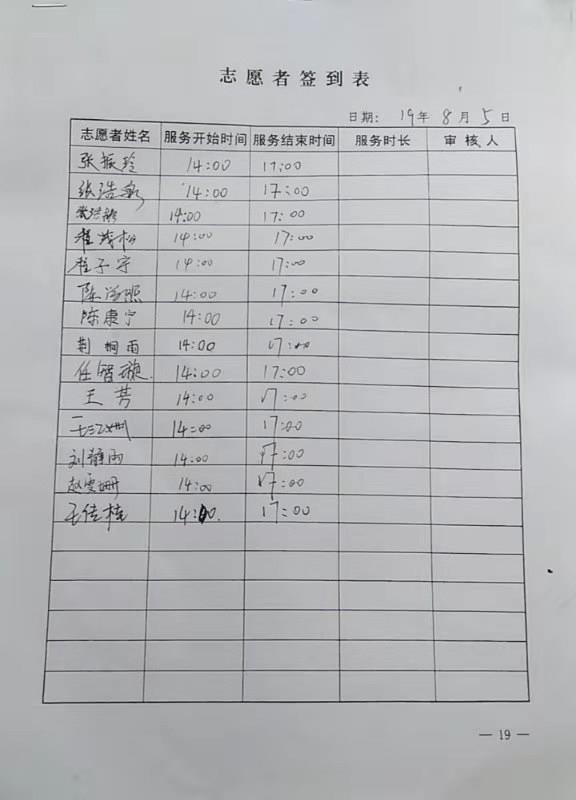 志愿者签到表
日期: 19年8月5日
志愿者姓名 服务开始时间 服务结束时间 服务时长 审核人
张振玲 14:00 17:00
张浩 14:00 17:00
14:00 17:00
14:00 17:00
程子宇 14:00 17:00
陈 14:00 17:00
陈康宁 14:00 17:00
荆桐雨 14:00 17:00
任智璇 14:00 17:00
王芳 14:00 17:00
14:00 17:00
刘静雨 14:00 17:00
赵雯姗 14:00 17:00
王佳桂 14:00 17:00
— 19 —